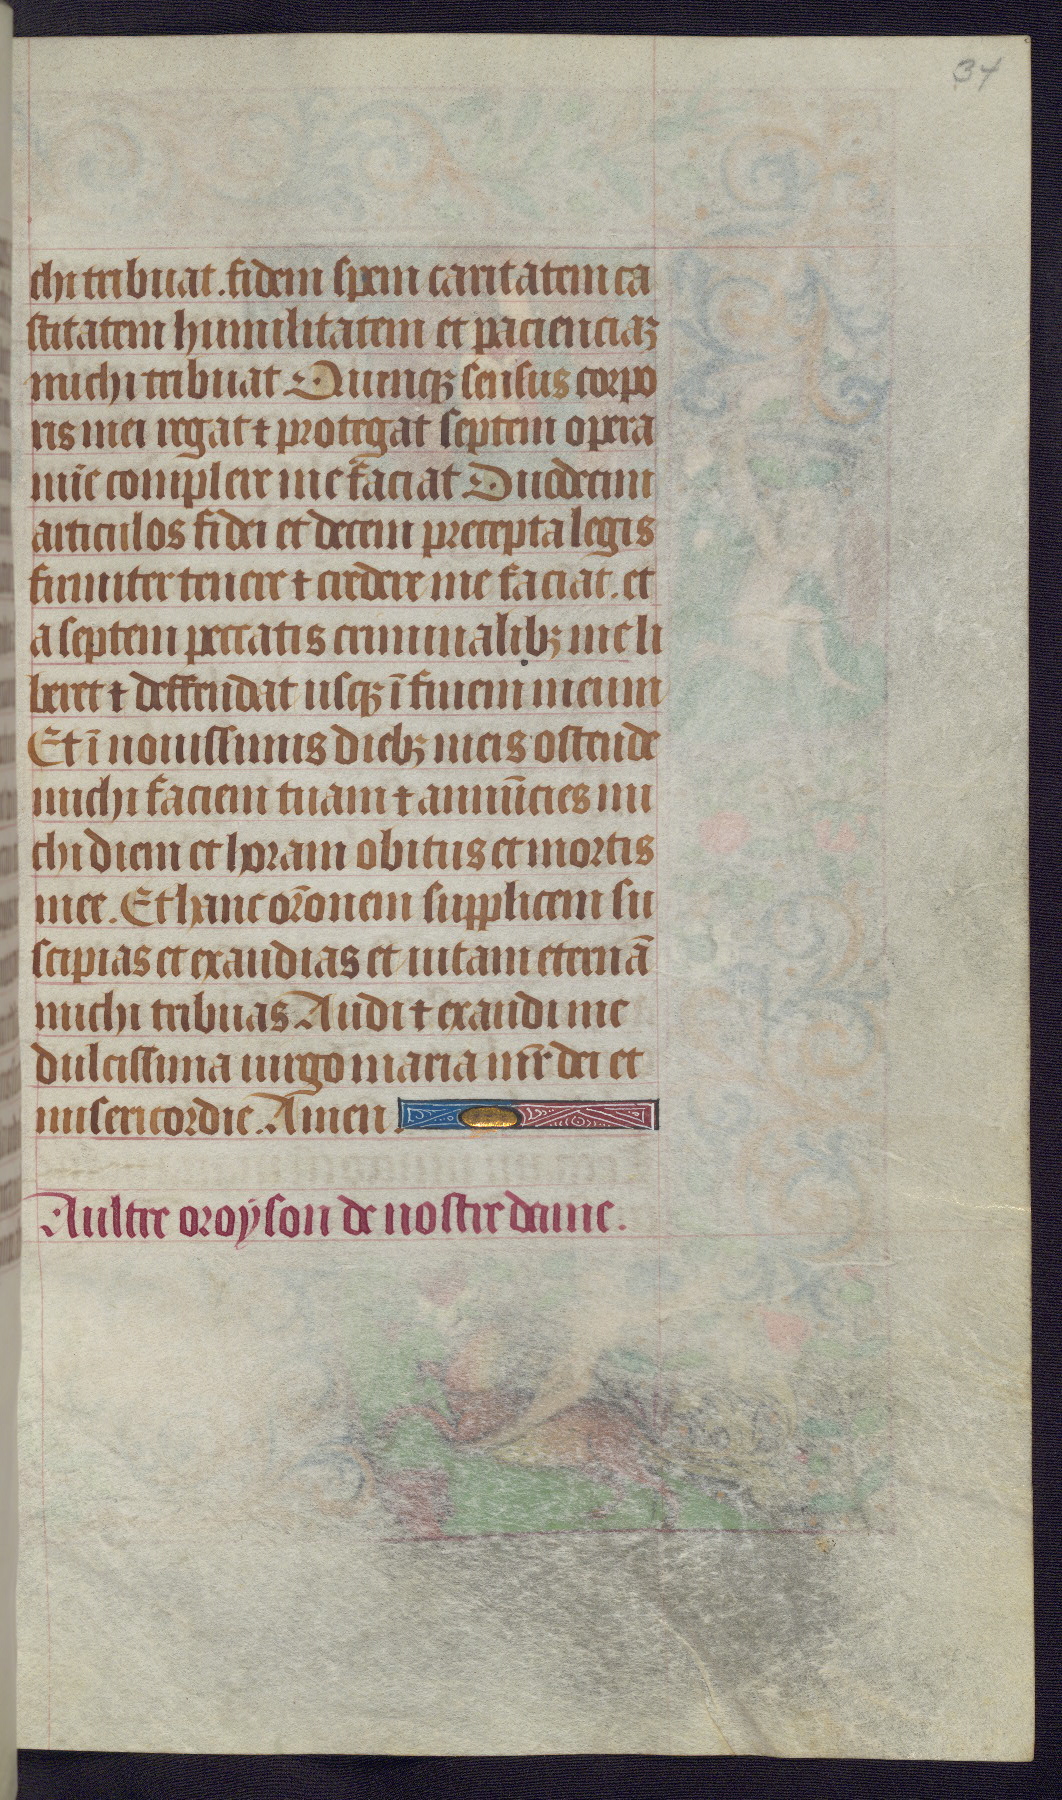 34
chi tribuat. fidem spem caritatem ca
stitatem humilitatem et pacienciaꝫ
michi tribuat Quenqꝫ sensus corpo
ris mei regat ⁊ protegat septem opera
mie complere me faciat Duodecim
articulos fidei et decem precepta legis
firmiter tenere ⁊ credere me faciat. et
a septem peccatis criminalibꝫ me li
beret ⁊ deffendat usqꝫ ī finem meum
Et ī nouissimis diebꝫ meis ostende
michi faciem tuam ⁊ annūcies mi
chi diem et horam obitus et mortis
mee. Et hanc orōnem supplicem su
scipias et exaudias et uitam eternā
michi tribuas Audi ⁊ exaudi me
dulcissima uirgo maria mr̄ dei et
misericordie. Amen.
Aultre oroyson de nostre dame.